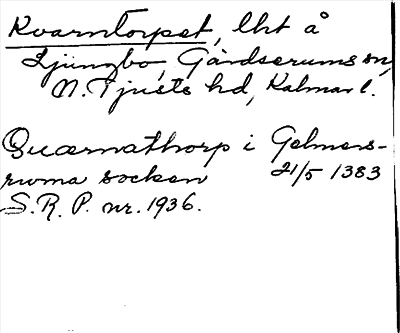 Kvarntorpet, lht å
Ljungbo, Gårdserums sn,
N. Tjusts hd, Kalmar l.
Quærnathorp i Gelmers-
ruma socken 21/5 1383
S.R.P. nr. 1936.